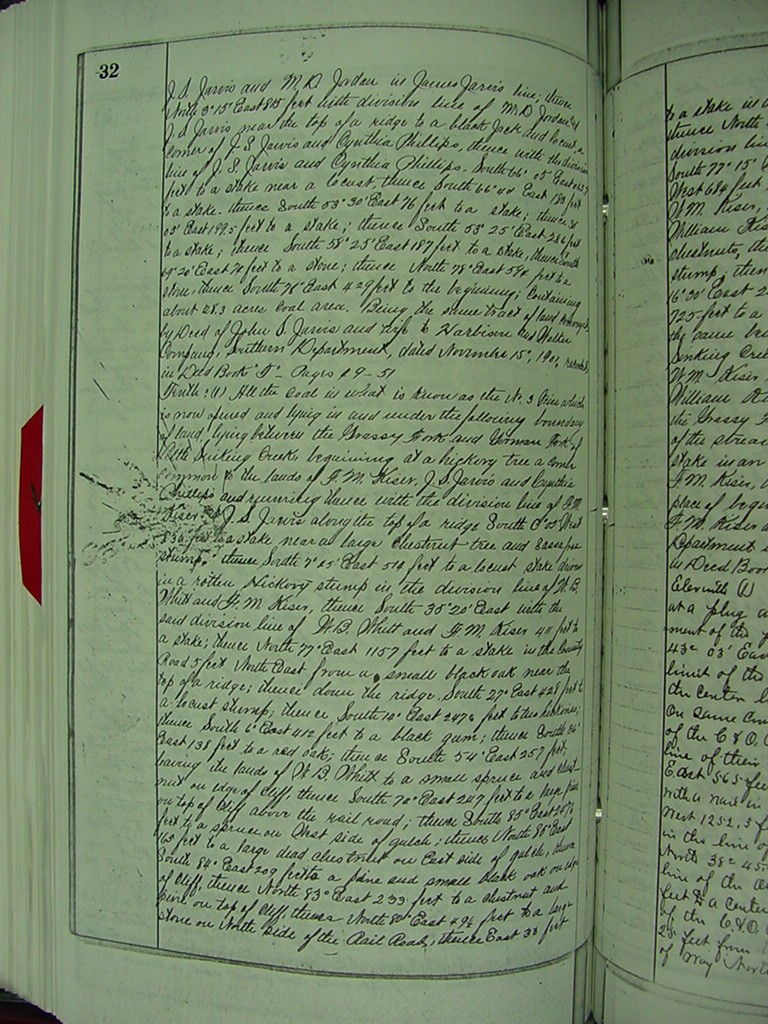 32
J. S. Jarvis and M. D. Jordan in James Jarvis line; thence
North 3° 15' East 815 feet with division line of M. D. Jordan &
J. S. Jarvis near the top of a ridge to a black Jack and locust, a
corner of J. S. Jarvis and Cynthia Phillips, thence with the division
line of J. S. Jarvis and Cynthia Phillips. South 66° 05' East
feet to a stake near a locust, thence South 66° 40' East 180 feet
to a stake. thence South 53° 30' East 76 feet to a stake; thence
03' East 199.5 feet to a stake; thence South 55° 25' East 286 feet
to a stake; thence South 58° 25' East 187 feet to a stake, thence South
20' East 71 feet to a stone; thence North 78° East 594 feet to a
stone, thence South 76° East 429 feet to the beginning; Containing
about 28.3 acres Coal area. Being the same tract of land
by Deed of John S Jarvis and wife to Harbison and Walker
Company, Southern Department, dated November 15", 1901, recorded
in Deed Book Pages 49-51
Tenth: (1) All the coal in what is know as the No. 3 Vein which
is now opened and lying in and under the following boundary
of land, lying between the Grassy Fork and Fork of
Little Sinking Creek, beginning at a hickory tree a corner
common to the lands of F. M. Kiser, J. S. Jarvis and Cynthia
Phillips and running thence with the division line of F. M.
Kiser & J. S. Jarvis along the top of a ridge South West
836 feet to a stake near a large chestnut tree and Sassafras
stump, thence South 7° 25' East 510 feet to a locust stake driven
in a rotten Hickory stump in the division line of W. B.
Whitt and F. M. Kiser, thence South 35° 20' East with the
said division line of W. B. Whitt and F. M. Kiser 411 feet to
a stake; thence North 77° East 1157 feet to a stake in the County
Road 5 feet North East from a small black oak near the
top of a ridge; thence down the ridge, South 27° East 428 feet to
a locust stump; thence, South 10° East 247 feet to two hickories;
thence South 6° East 412 feet to a black gum; thence South 36°
East 138 feet to a red oak; thence South 54° East 257 feet,
leaving the lands of W. B. Whitt to a small spruce and chest-
nut on edge of cliff, thence South 70° East 247 feet to a large pine
on top of cliff above the rail road; thence South 85° East 207
feet to a spruce on West side of gulch; thence North 86° East
165 feet to a large dead chestnut on East side of gulch, thence
South 84° East 209 feet to a pine and small black oak on edge
of cliff, thence North 83° East 233 feet to a chestnut and
pine on top of cliff, thence North 80° East 494 feet to a large
stone on North side of the Rail Road, thence East 38 feet
to a stake in
thence North
division line
South 77° 15'
West 684 feet
F. M. Kiser,
William
chestnuts, the
stump; then
16° 30' East 2
725 feet to a
the same be
Sinking Cree
F. M. Kiser
William
the Grassy F
of the stream
stake in an
F. M. Kiser,
place of begin
F. M. Kiser a
Department
in Deed Boo
Eleventh (1)
at a plug
ment of the
43° 03' East
limit of the
the center l
on same
of the C & O.
line of their
East 565 fee
with a nail in
West 1252.3 f
in the line of
North 38° 45
line of the
feet to a cente
of the C. & O.
25 feet from
of way North